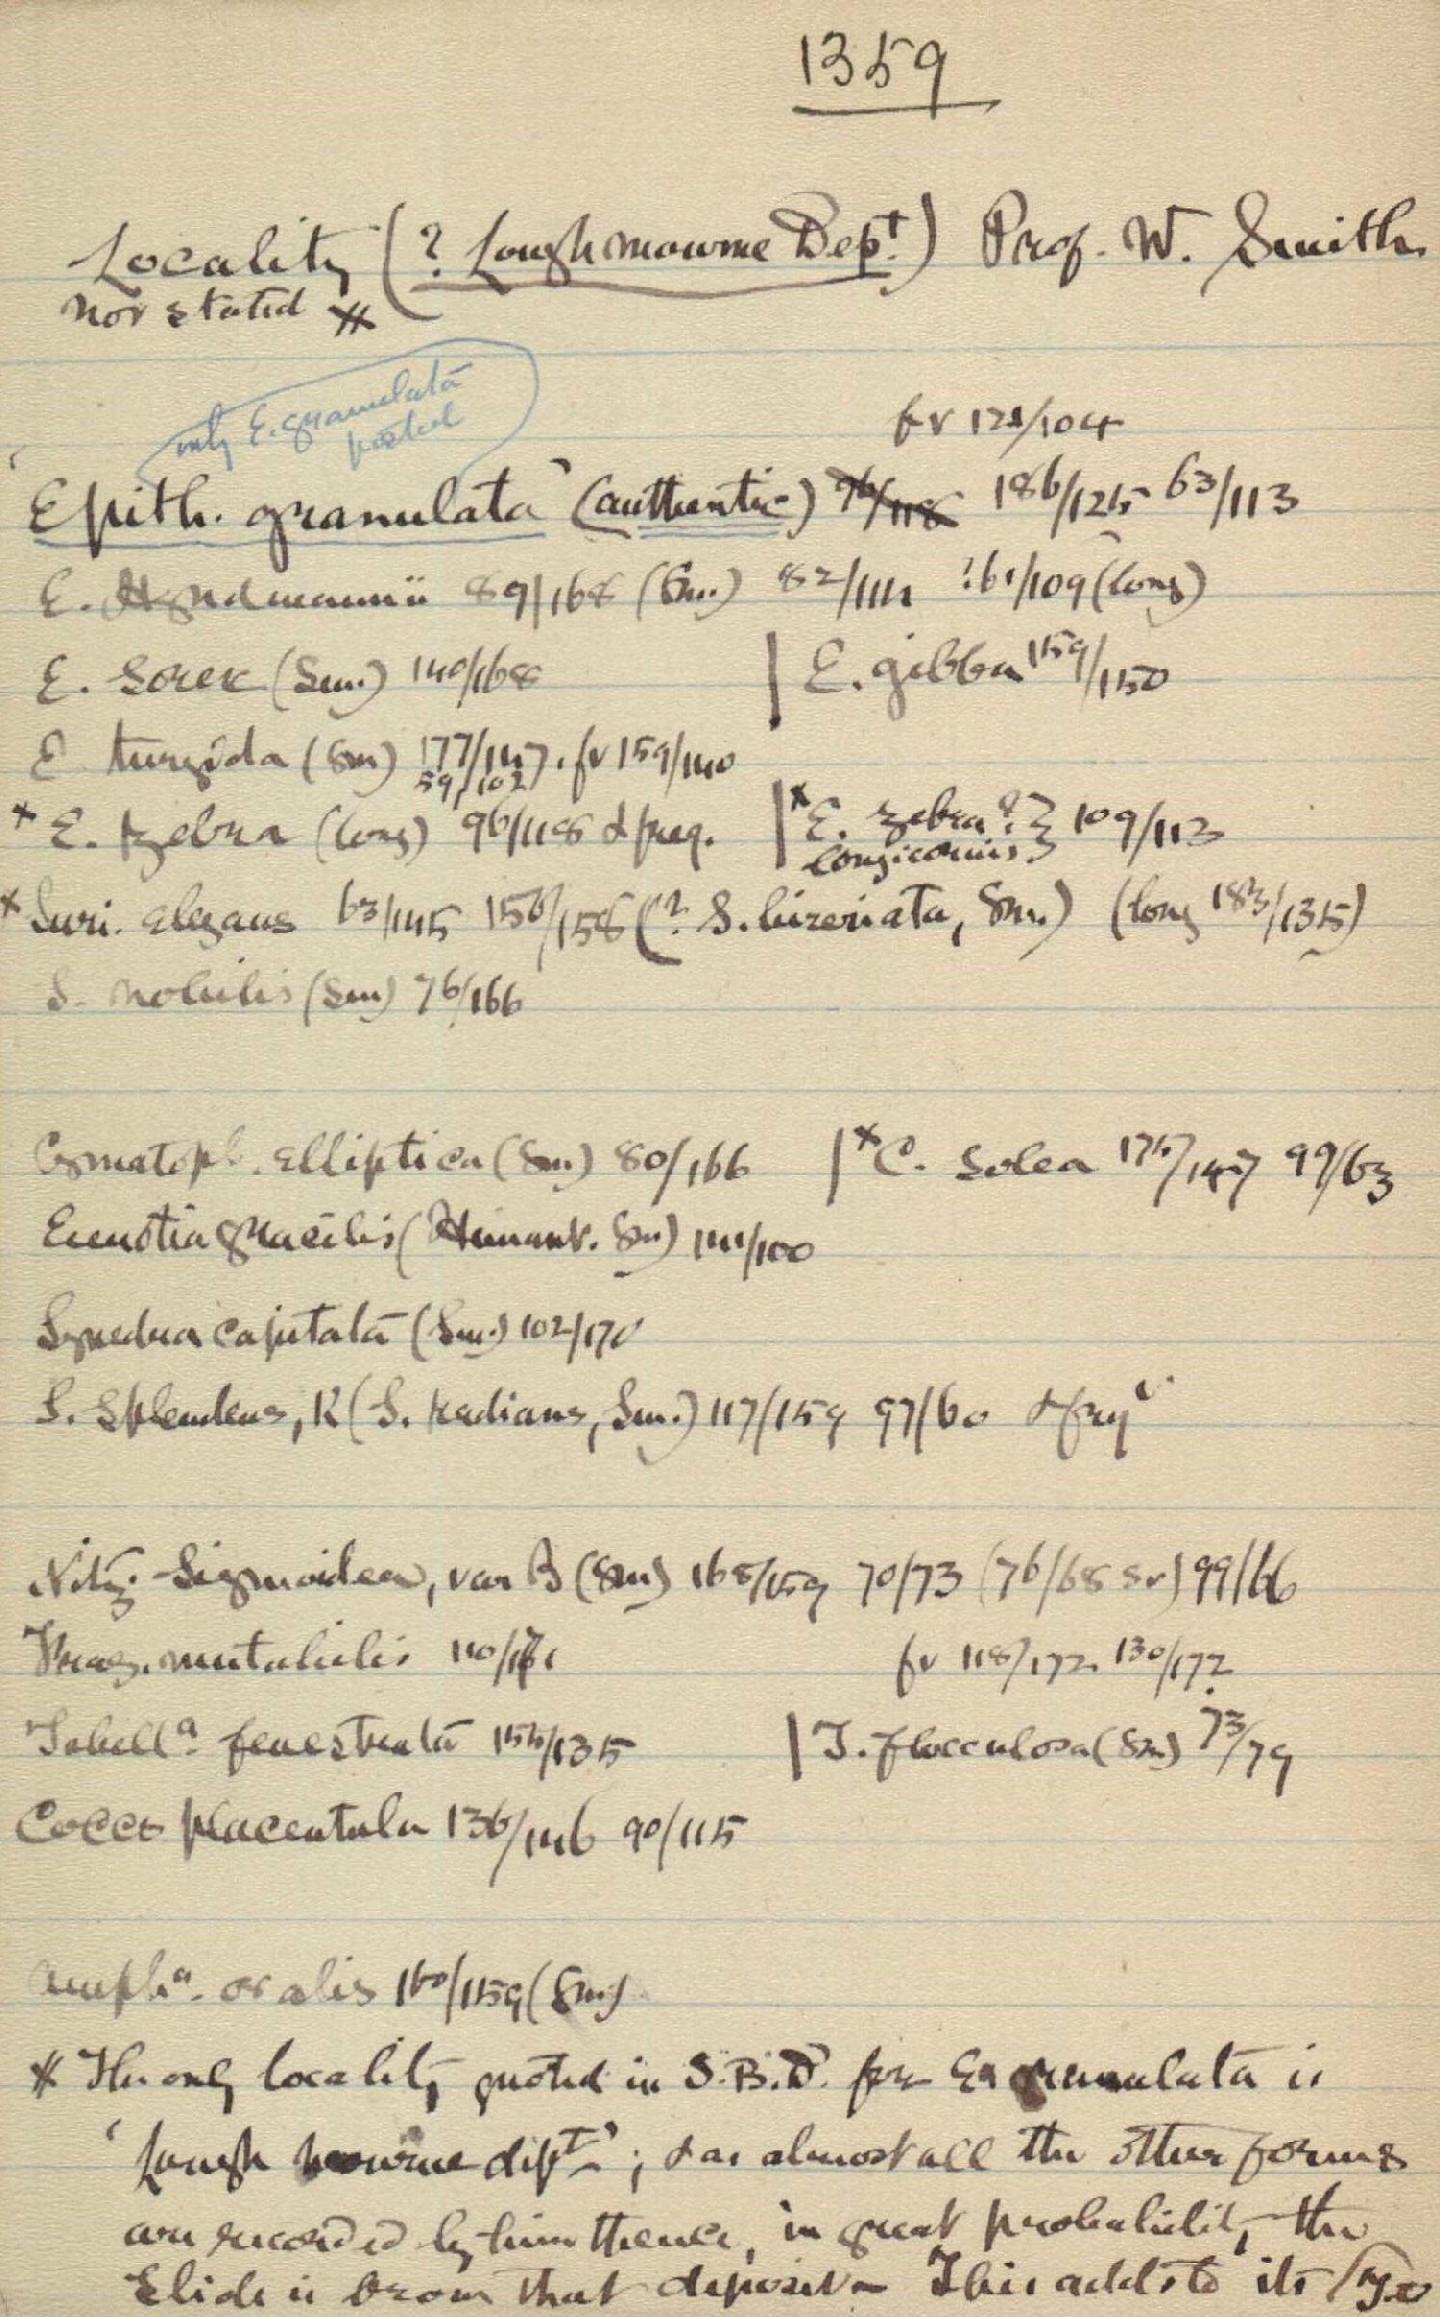 1359
Locality (? Loughmourne Dept.) Prof. W. Smith
not stated *
only E. granulata
posted
fv 121/104
'Epith. granulata' (authentic) 76/118 186/125 63/113
E. Hyndmannii 89/168 (Sm.) 82/141 ?61/109 (long)
E. Sorex (Sm.) 140/168 | E. gibba 159/150
E. turgida (Sm) 177/147. fv 159/140
59/102
* E. zebra (long) 96/118 & freq. | * E. zebra? } 109/113
longicornis }
* Suri. elegans 63/145 156/158 (? S. biseriata, Sm.) (long 183/135)
S. nobilis (Sm) 76/166
Cymatopl. elliptica (Sm.) 80/166 | * C. Solea 175/147 99/63
Eunotia gracilis (Himant. Sm) 141/100
Synedra capitata (Sm.) 102/170
S. Splendens, K (S. radians, Sm.) 117/159 97/60 & freq
Nitz. Sigmoidea, var B (Sm) 168/159 70/73 (76/68 sv) 99/66
Frag. mutabilis 110/171 fv 118/172 130/172
Tabella. fenestrata 155/135 | T. flocculosa (Sm) 73/79
Cocco placentula 136/146 90/115
Ampha. ovalis 160/159 (Sm)
* The only locality quoted in S.B.D. for E. granulata is
'Lough mourne dept'; & as almost all the other forms
are recorded by him thence, in great probability the
Slide is from that deposit – This adds to its